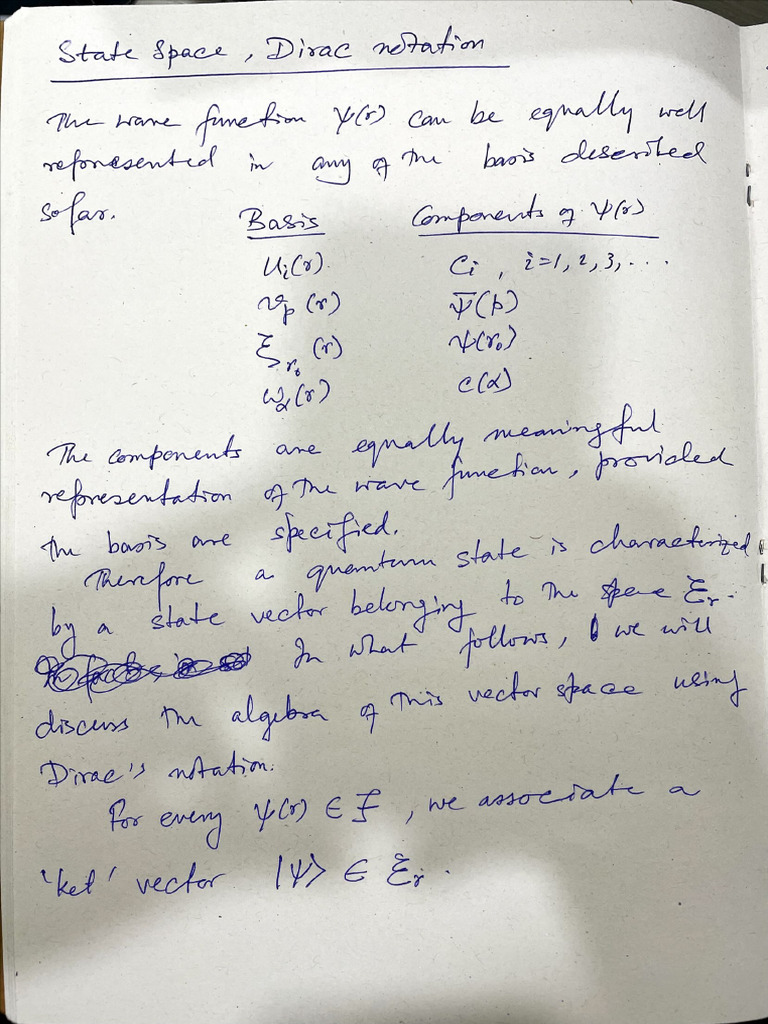 State Space, Dirac notation
The wave function ψ(r) can be equally well
represented in any of the basis described
sofar.
Basis Components of ψ(r)
u_i(r) c_i, i=1, 2, 3, ...
v_p(r) ψ̄(p)
ξ_{r₀}(r) ψ(r₀)
ω_α(r) c(α)
The components are equally meaningful
representation of the wave function, provided
the basis are specified.
Therefore a quantum state is characterized
by a state vector belonging to the space ℰ_r.
In what follows, we will
discuss the algebra of this vector space using
Dirac's notation.
For every ψ(r) ∈ ℱ, we associate a
'ket' vector |ψ⟩ ∈ ℰ_r.